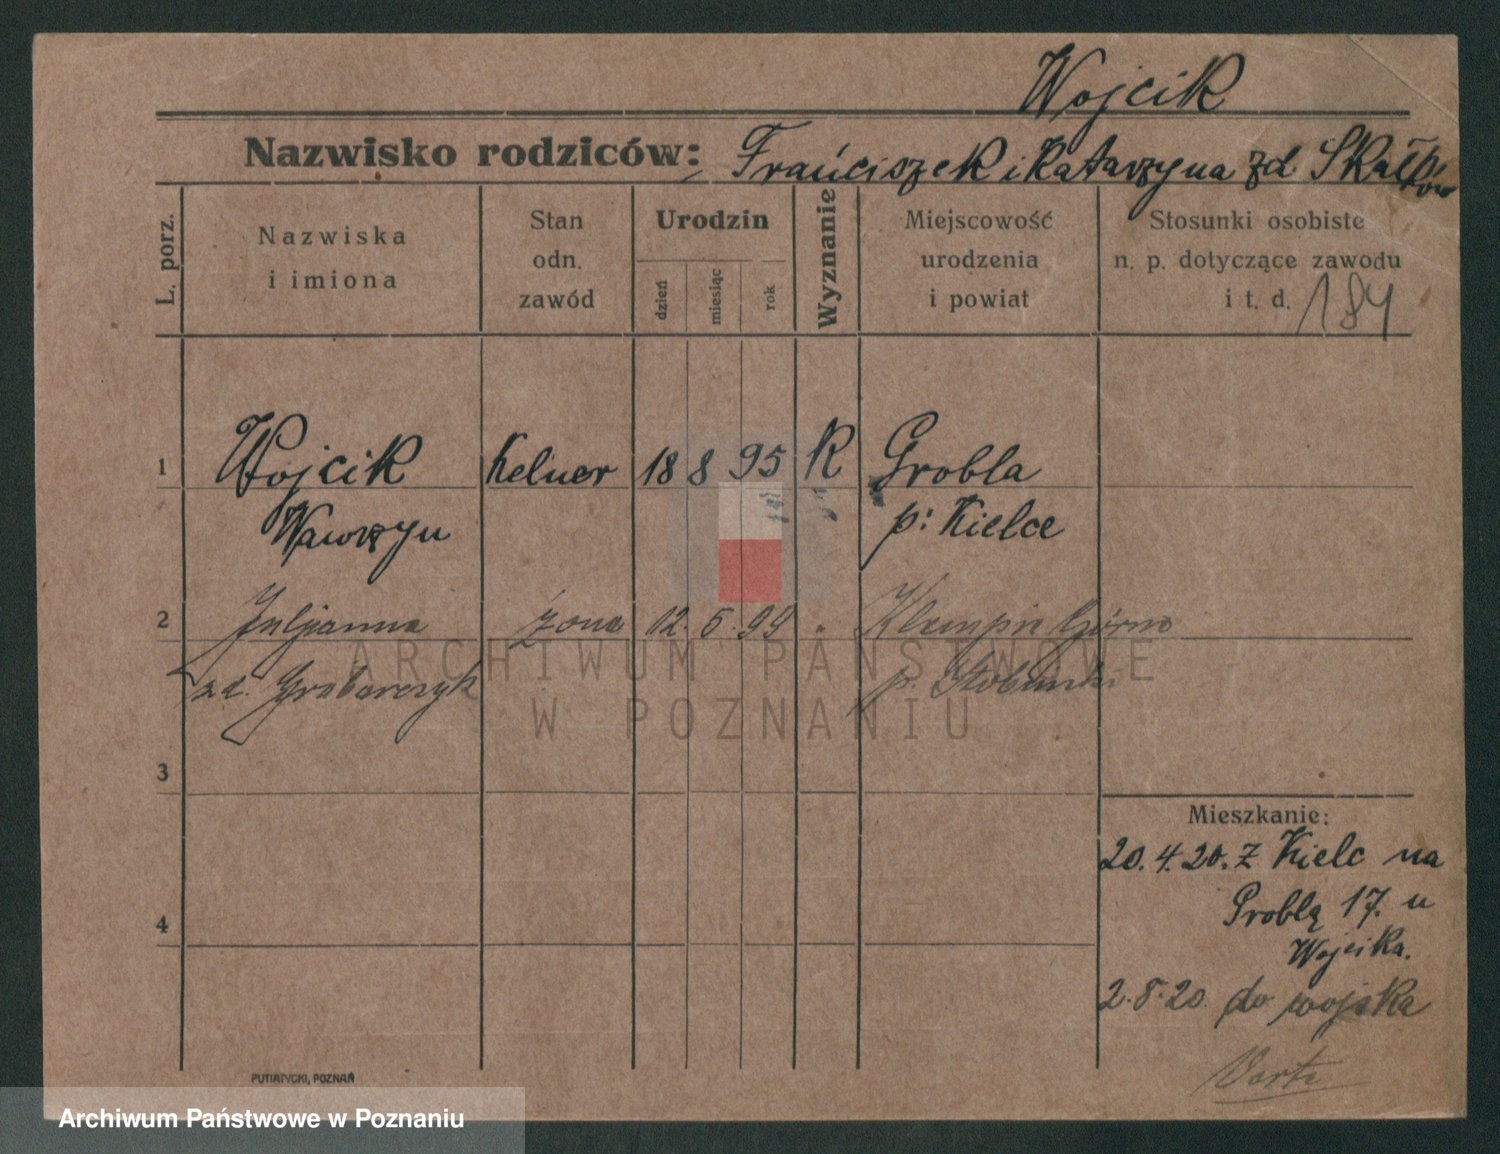 Wojcik
Nazwisko rodziców: Frańciszek i Katarzyna zd
L. porz.
Nazwiska
i imiona
Stan
odn.
zawód
Urodzin
dzień
miesiąc
rok
Wyznanie
Miejscowość
urodzenia
i powiat
Stosunki osobiste
n. p. dotyczące zawodu
i t. d.
184
1 Wojcik Kelner 18 8 95 R Grobla
Wawrzyn p: Kielce
2 Juljanna żona 12. 5. 99 " Górne
zd. Grabarczyk p.
3
4
Mieszkanie:
20.4.20. z Kielc na
Groblą 17. u
Wojcika.
2.8.20. do wojska
Vorte
PUTIATYCKI, POZNAŃ
ARCHIWUM PAŃSTWOWE
W POZNANIU
Archiwum Państwowe w Poznaniu